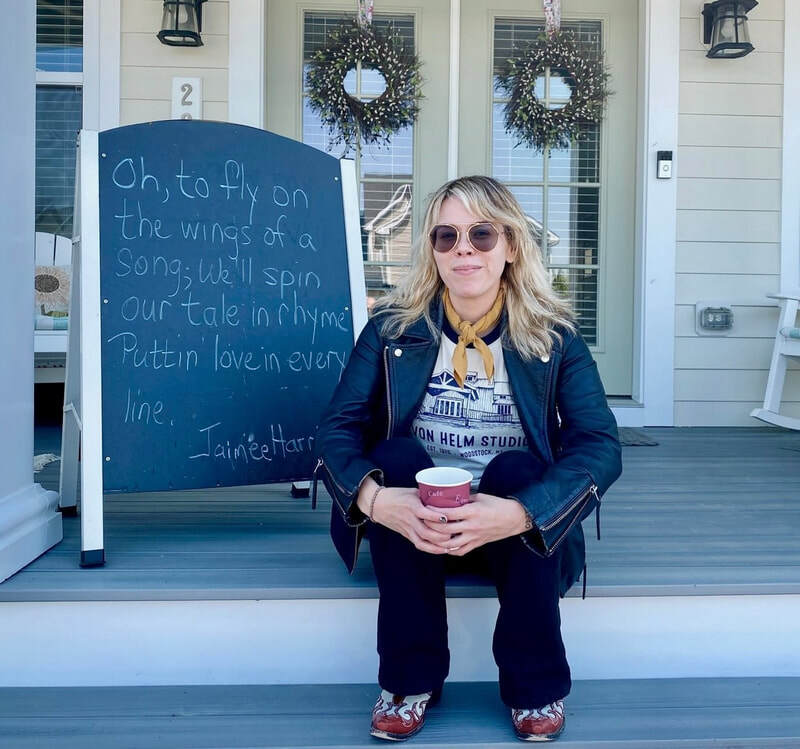 2
Oh, to fly on
the wings of a
song; We'll spin
our tale in rhyme
Puttin' love in every
line.
Jaimee Harr
VON HELM STUDI
WOODSTOCK,
Café